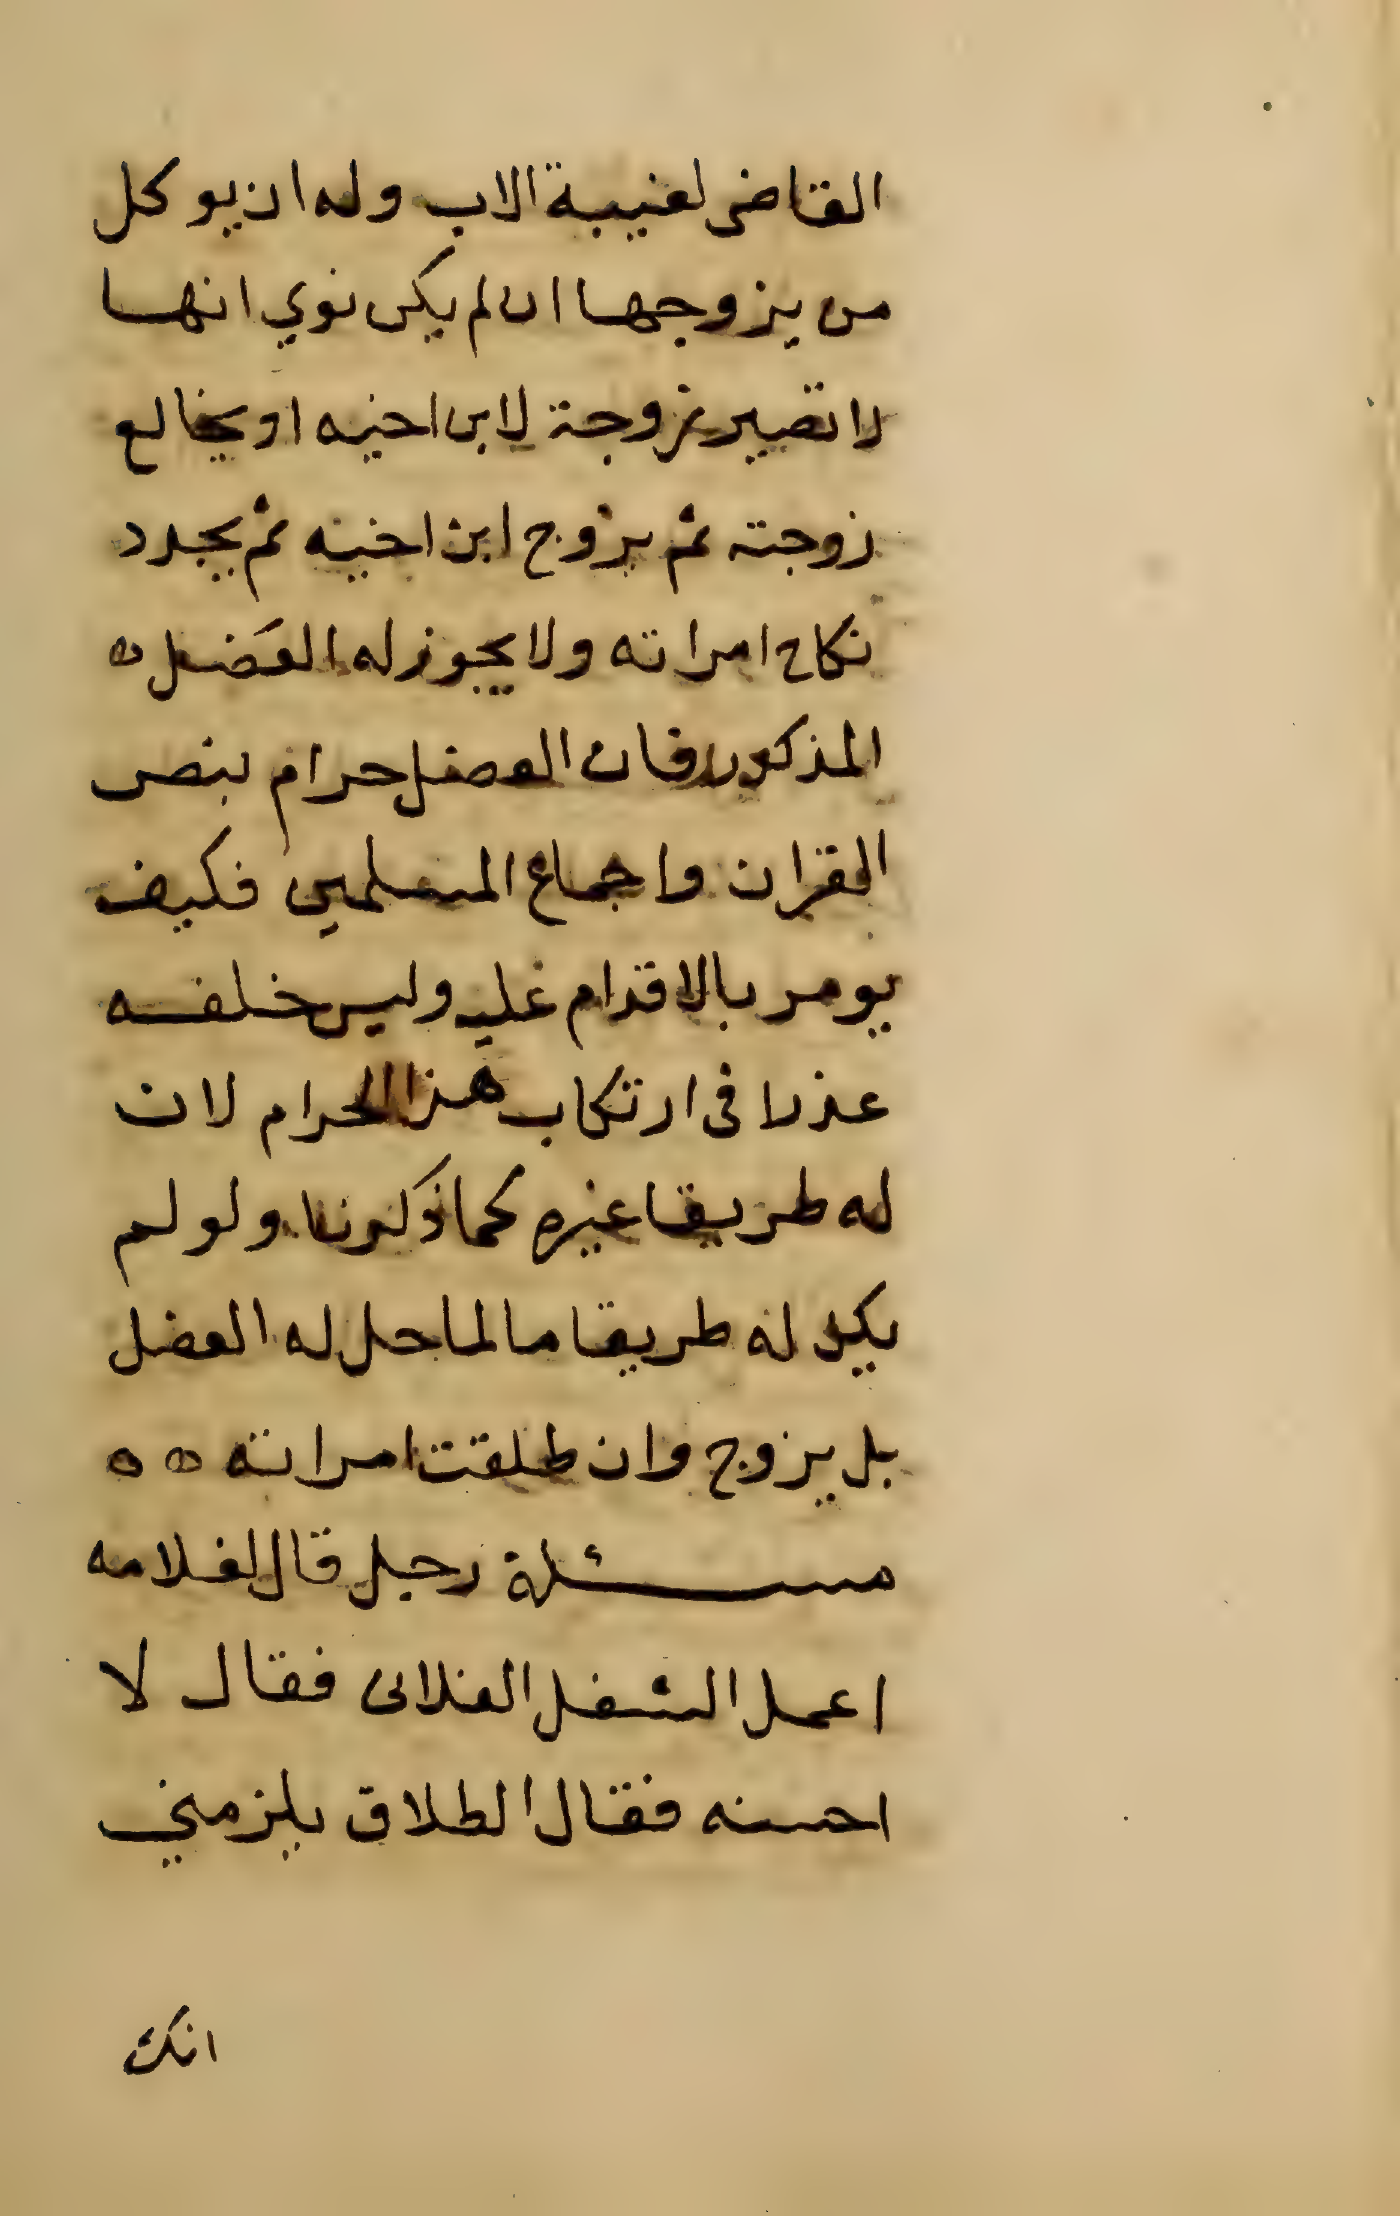 القاضى لغيبة الاب وله ان يوكل
من يزوجها ان لم يكن نوي انها
لا تصير زوجة لابن اخيه او يخالع
زوجته ثم يزوج ابن اخيه ثم يجدد
نكاح امراته ولا يجوز له العضل ه
المذكور فان العضل حرام بنص
القران واجماع المسلمين فكيف
يومر بالاقدام عليه وليس خلفه
عذرا فى ارتكاب هذا الحرام لان
له طريقا غيره كما ذكرنا ولو لم
يكن له طريقا ما لما حل له العضل
بل يزوج وان طلقت امراته ه ه ه
مسئلة رجل قال لغلامه
اعمل الشغل الفلانى فقال لا
احسنه فقال الطلاق يلزمني
انك